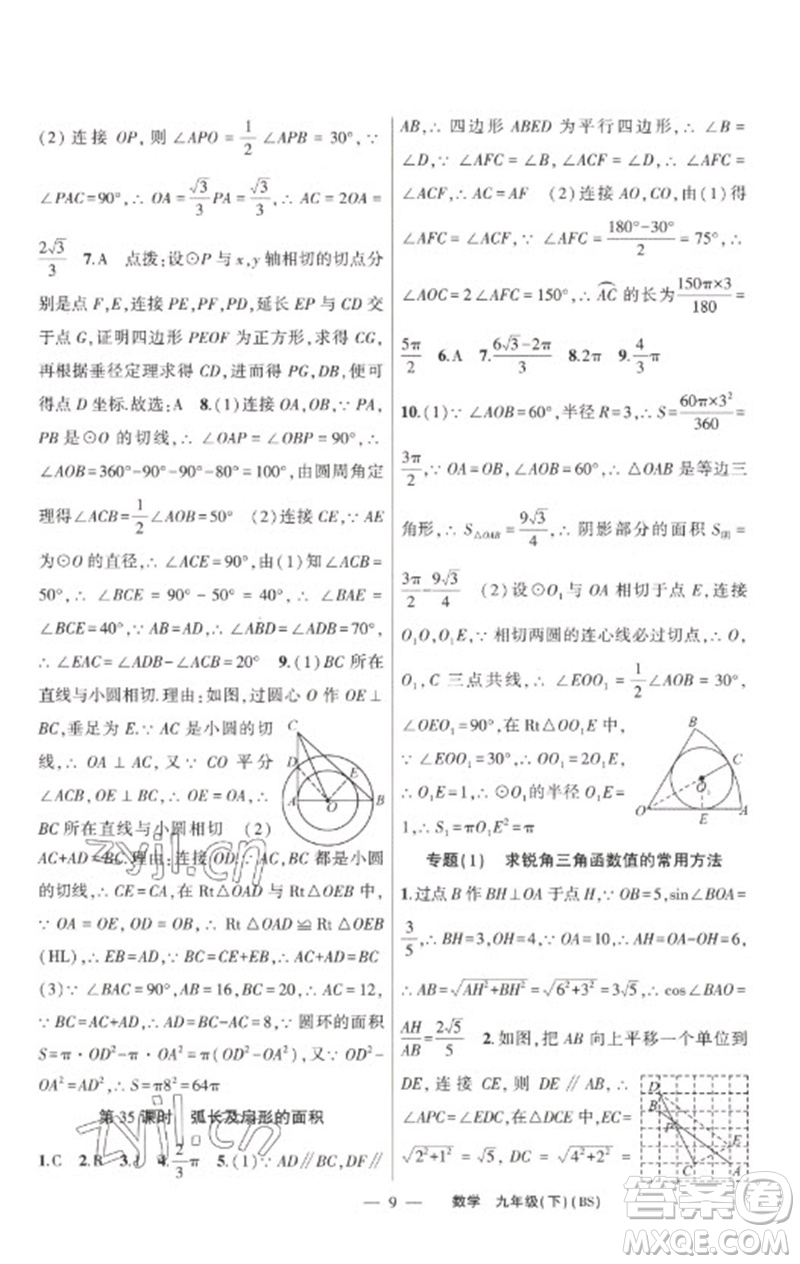 (2) 连接 OP, 则 ∠APO = 1/2 ∠APB = 30°, ∵
∠PAC=90°, ∴ OA = √3/3 PA = √3/3, ∴ AC = 2OA =
2√3/3 7.A 点拨:设⊙P 与 x,y 轴相切的切点分
别是点 F,E,连接 PE,PF,PD,延长 EP 与 CD 交
于点 G,证明四边形 PEOF 为正方形,求得 CG,
再根据垂径定理求得 CD,进而得 PG,DB,便可
得点 D 坐标.故选:A 8.(1)连接 OA,OB,∵ PA,
PB 是⊙O 的切线,∴ ∠OAP = ∠OBP = 90°, ∴
∠AOB=360°-90°-90°-80°=100°,由圆周角定
理得∠ACB= 1/2 ∠AOB=50° (2)连接 CE,∵ AE
为⊙O 的直径,∴ ∠ACE=90°,由(1)知∠ACB=
50°, ∴ ∠BCE = 90° - 50° = 40°, ∴ ∠BAE =
∠BCE=40°,∵ AB=AD,∴ ∠ABD=∠ADB=70°,
∴ ∠EAC=∠ADB-∠ACB=20° 9.(1) BC 所在
直线与小圆相切.理由:如图,过圆心 O 作 OE⊥
BC,垂足为 E.∵ AC 是小圆的切
线,∴ OA ⊥ AC, 又∵ CO 平分
∠ACB, OE ⊥ BC, ∴ OE = OA, ∴
BC 所在直线与小圆相切 (2)
AC+AD=BC 理由:连接 OD.∵ AC,BC 都是小圆
的切线,∴ CE = CA,在 Rt△OAD 与 Rt△OEB 中,
∵ OA = OE, OD = OB, ∴ Rt △OAD ≌ Rt △OEB
(HL),∴ EB=AD,∵ BC=CE+EB,∴ AC+AD=BC
(3) ∵ ∠BAC = 90°, AB = 16, BC = 20, ∴ AC = 12,
∵ BC=AC+AD,∴ AD=BC-AC=8,∵ 圆环的面积
S=π·OD²-π·OA²=π(OD²-OA²),又∵ OD²-
OA²=AD²,∴ S=π8²=64π
第 35 课时 弧长及扇形的面积
1.C 2.B 3. 4. 2/3 π 5. (1) ∵ AD∥BC, DF∥
AB,∴ 四边形 ABED 为平行四边形,∴ ∠B =
∠D,∵ ∠AFC = ∠B, ∠ACF = ∠D, ∴ ∠AFC =
∠ACF, ∴ AC = AF (2) 连接 AO,CO,由(1) 得
∠AFC = ∠ACF = (180°-30°)/2 = 75°, ∴
∠AOC=2∠AFC=150°,∴ A͡C 的长为 150π×3/180 =
5π/2 6.A 7. (6√3-2π)/3 8.2π 9. 4/3 π
10. (1)∵ ∠AOB=60°,半径 R=3,∴ S= 60π×3²/360 =
3π/2,∵ OA = OB, ∠AOB = 60°, ∴ △OAB 是等边三
角形,∴ S△OAB = 9√3/4, ∴ 阴影部分的面积 S阴 =
3π/2 - 9√3/4 (2)设⊙O₁与 OA 相切于点 E,连接
O₁O,O₁E,∵ 相切两圆的连心线必过切点,∴ O,
O₁, C 三点共线, ∴ ∠EOO₁ = 1/2 ∠AOB = 30°,
∠OEO₁ = 90°,在 Rt△OO₁E 中,
∵ ∠EOO₁ = 30°, ∴ OO₁ =
2O₁E, ∴ OC = OO₁ + O₁C = 3, ∴
O₁E=1,∴ ⊙O₁的半径 O₁E=
1,∴ S₁=πO₁E²=π
B
C
O₁
O
E
A
C
E
A
O
B
专题(1) 求锐角三角函数值的常用方法
1.过点 B 作 BH⊥OA 于点 H,∵ OB=5,sin∠BOA=
3/5,∴ BH=3,OH=4,∵ OA=10,∴ AH=OA-OH=6,
∴ AB=√(AH²+BH²)=√(6²+3²)=3√5,∴ cos∠BAO=
AH/AB = 2√5/5 2.如图,把 AB 向上平移一个单位到
DE, 连接 CE, 则 DE ∥ AB, ∴
∠APC=∠EDC,在△DCE 中,EC=
√(2²+1²) = √5, DC = √(4²+2²) =
D
B
P
E
C
A
— 9 — 数学 九年级(下)(BS)
zyjl.cn
zyjl.cn
答案圈
MXQE.COM